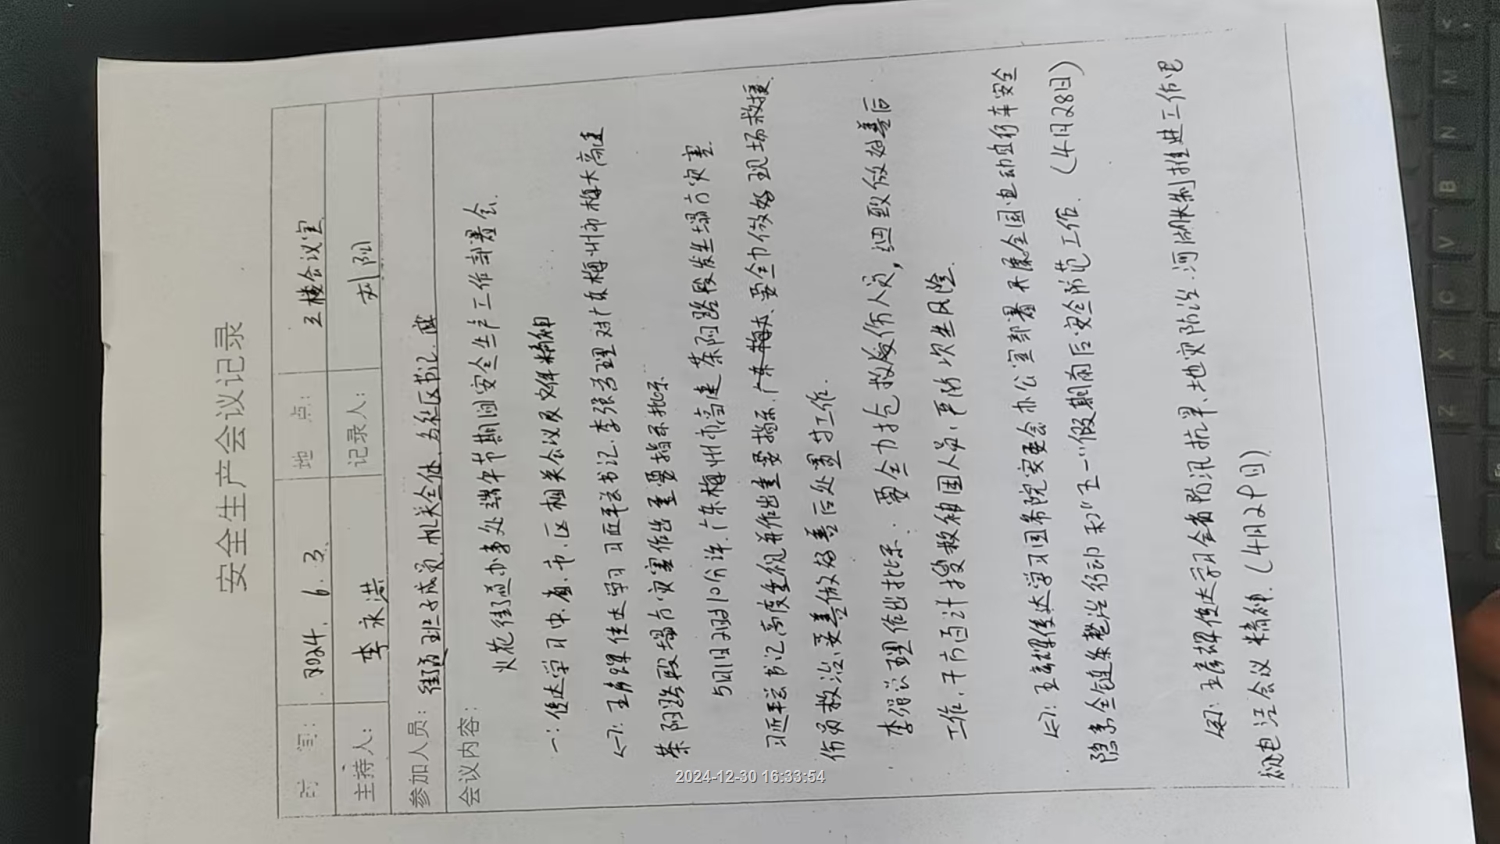 安全生产会议记录
时 间： 2024. 6. 3. 地 点： 三楼会议室
主持人： 李永洪 记录人： 刘阳
参加人员： 街道班子成员、机关全体、各社区书记、
会议内容：
火花街道办事处端午节期间安全生产工作部署会.
一：传达学习中、省、市、区相关会议及文件精神
<一>：传达学习习近平总书记、李强总理对广东梅州市梅大高速
茶阳路段塌方灾害作出重要指示批示
5月1日2时10分许，广东梅州市高速茶阳路段发生塌方灾害
习近平总书记高度重视并作出重要指示，要全力做好现场救援、
伤员救治，妥善做好善后处置等工作.
李强总理作出批示：要全力抢救受伤人员，细致做好善后
工作，千方百计搜救被困人员，严防次生风险.
传达学习国务院安委会办公室部署开展全国电动自行车安全
隐患全链条整治行动和“五一”假期前后安全防范工作. (4月28日)
<四>：传达学习全省防汛抗旱、地灾防治、河湖林长制推进工作电
视电话会议精神. (4月29日)
2024-12-30 16:33:54